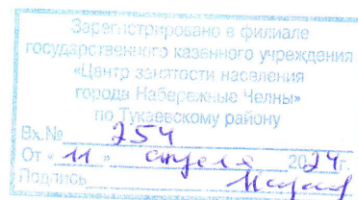 Зарегистрировано в филиале
государственного казенного учреждения
«Центр занятости населения
города Набережные Челны»
по Тукаевскому району
Вх.№ 254
От « 11 » апреля 2024г.
Подпись